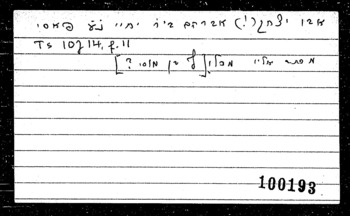 אבו יצחק(!) אברהם ביר יחיי נ"ע פאסי
TS 10J 14, f. 11
מכתב אליו מכלו[ף בן מוסי ?]
100193